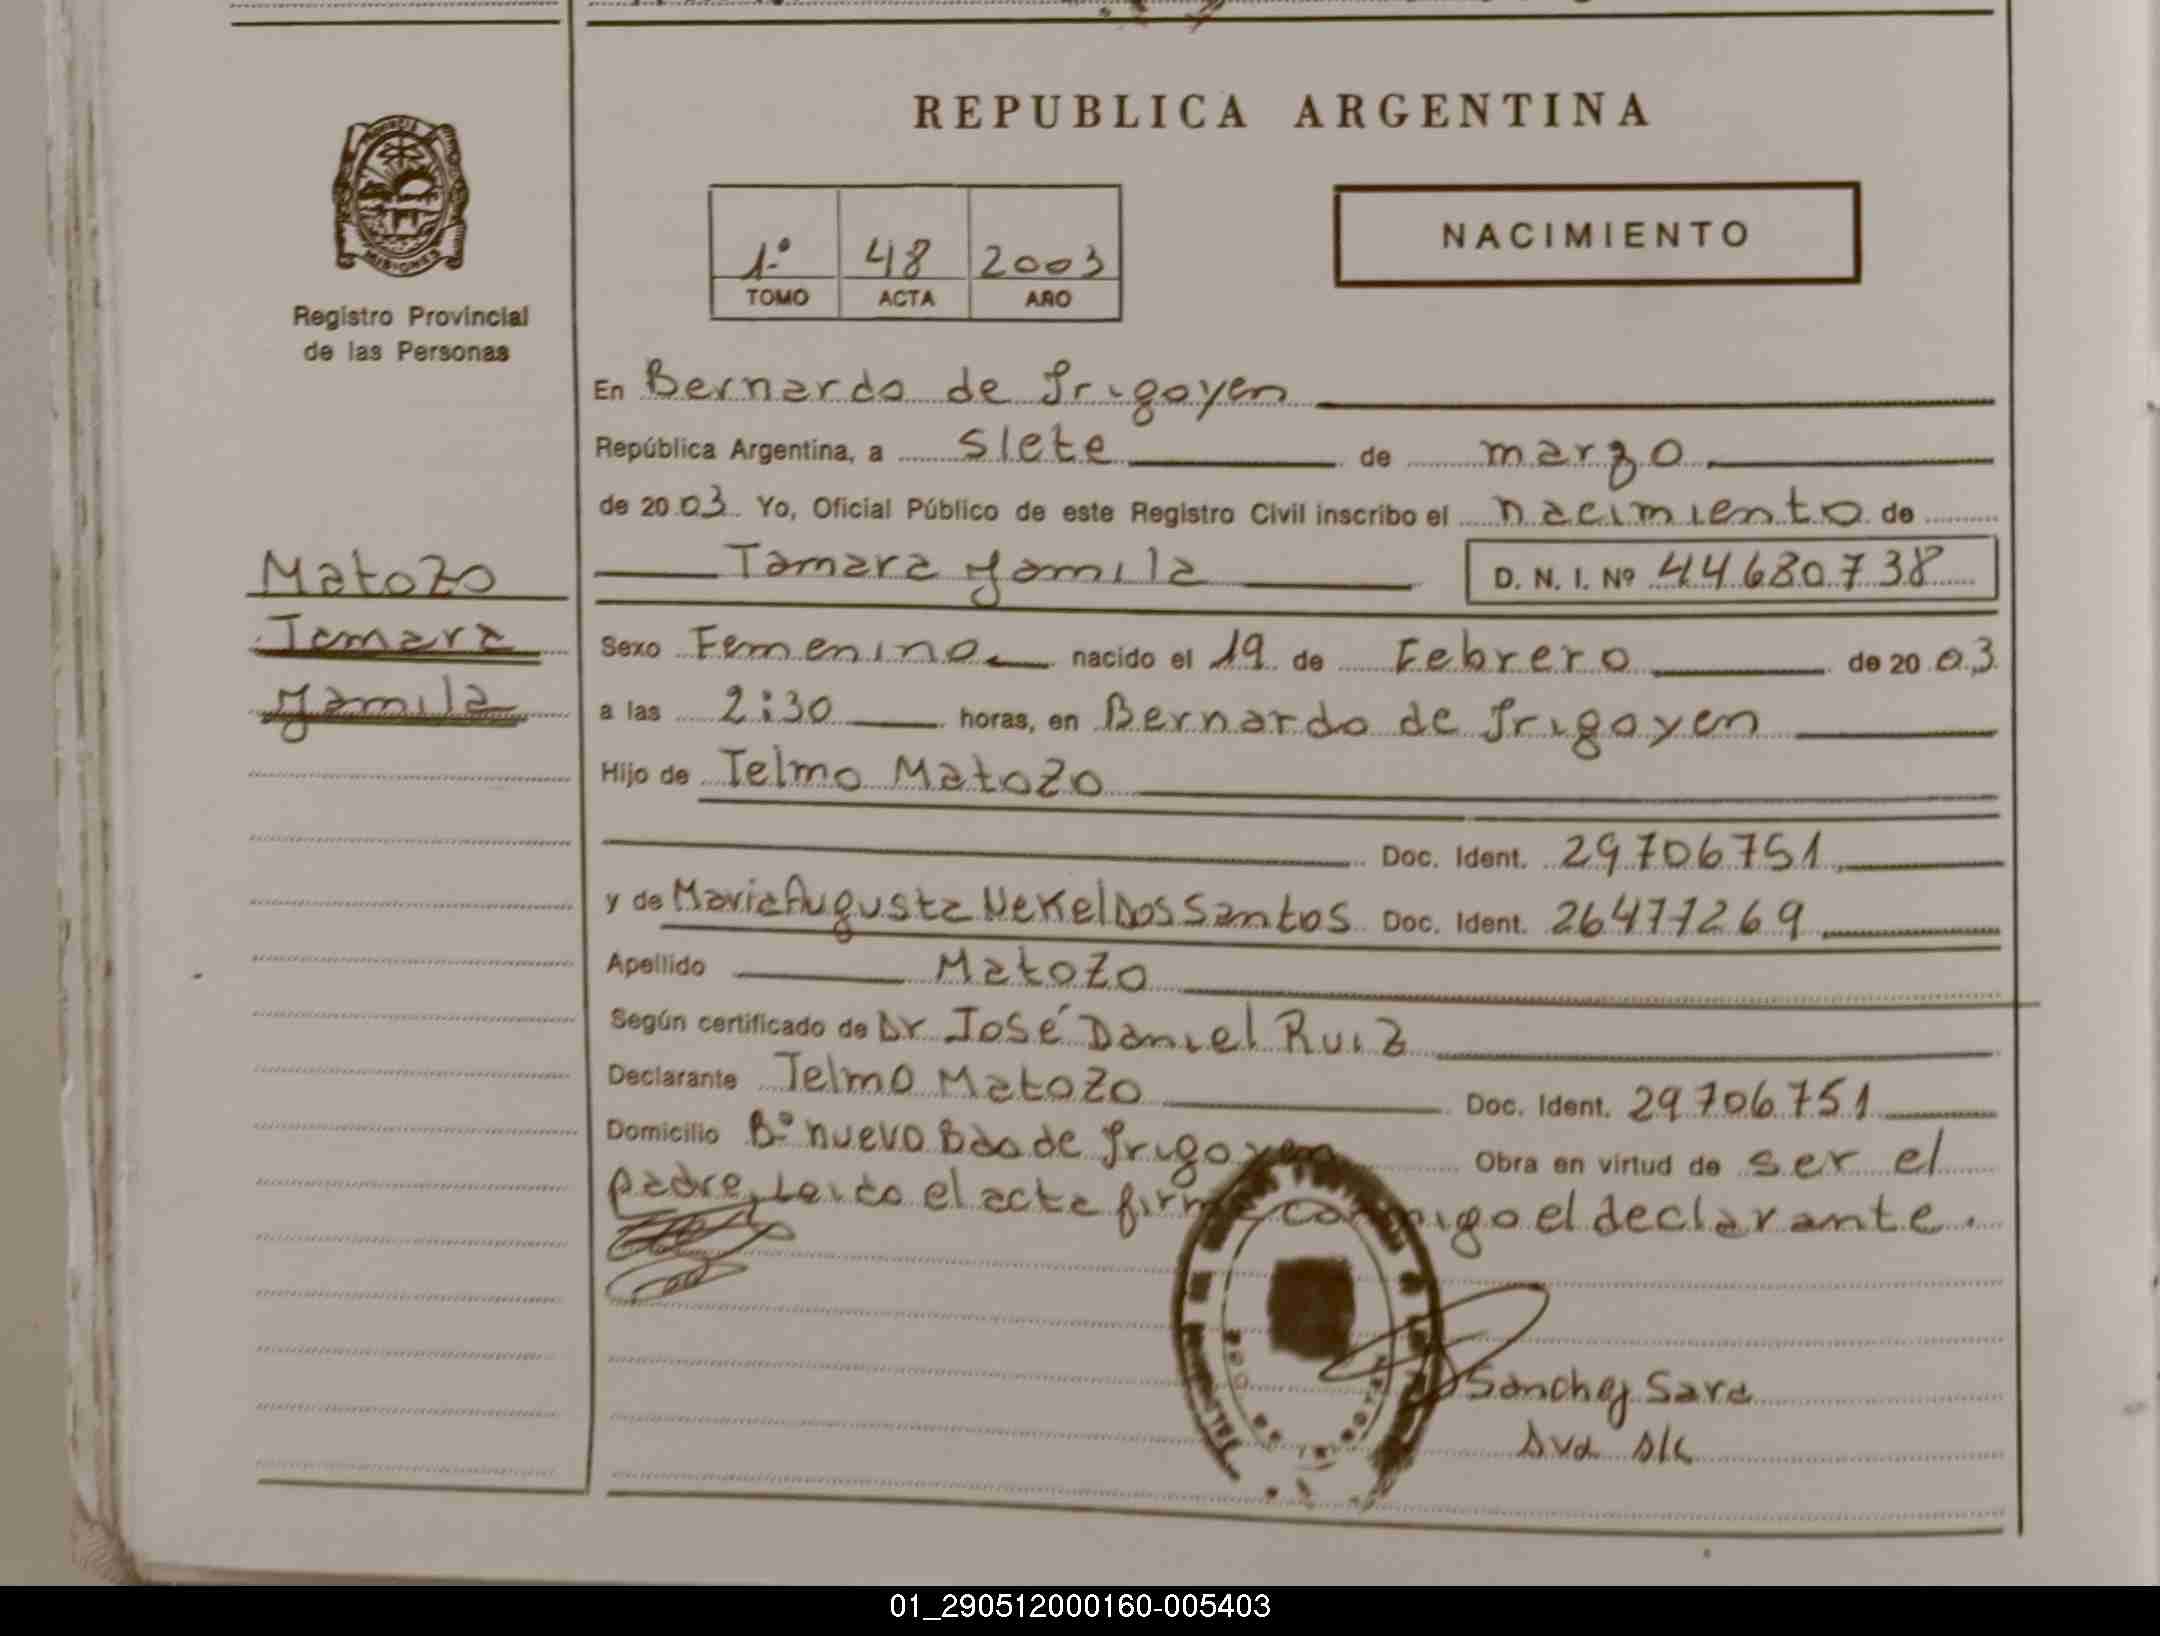 REPUBLICA ARGENTINA
MISIONES
Registro Provincial
de las Personas
1º 48 2003
TOMO ACTA AÑO
NACIMIENTO
En Bernardo de Irigoyen
República Argentina, a siete de marzo
de 2003 Yo, Oficial Público de este Registro Civil inscribo el nacimiento de
Tamara Yamila D. N. I. Nº 44680738
Matozo
Tamara
Yamila
Sexo Femenino nacido el 19 de Febrero de 2003
a las 2:30 horas, en Bernardo de Irigoyen
Hijo de Telmo Matozo
Doc. Ident. 29706751
y de Maria Augusta Nekel Dos Santos Doc. Ident. 26477269
Apellido Matozo
Según certificado de Dr José Daniel Ruiz
Declarante Telmo Matozo Doc. Ident. 29706751
Domicilio Bº nuevo Bdo de Irigoyen Obra en virtud de ser el
padre, Leido el acta firma conmigo el declarante.
Sanchez Sara
01_290512000160-005403